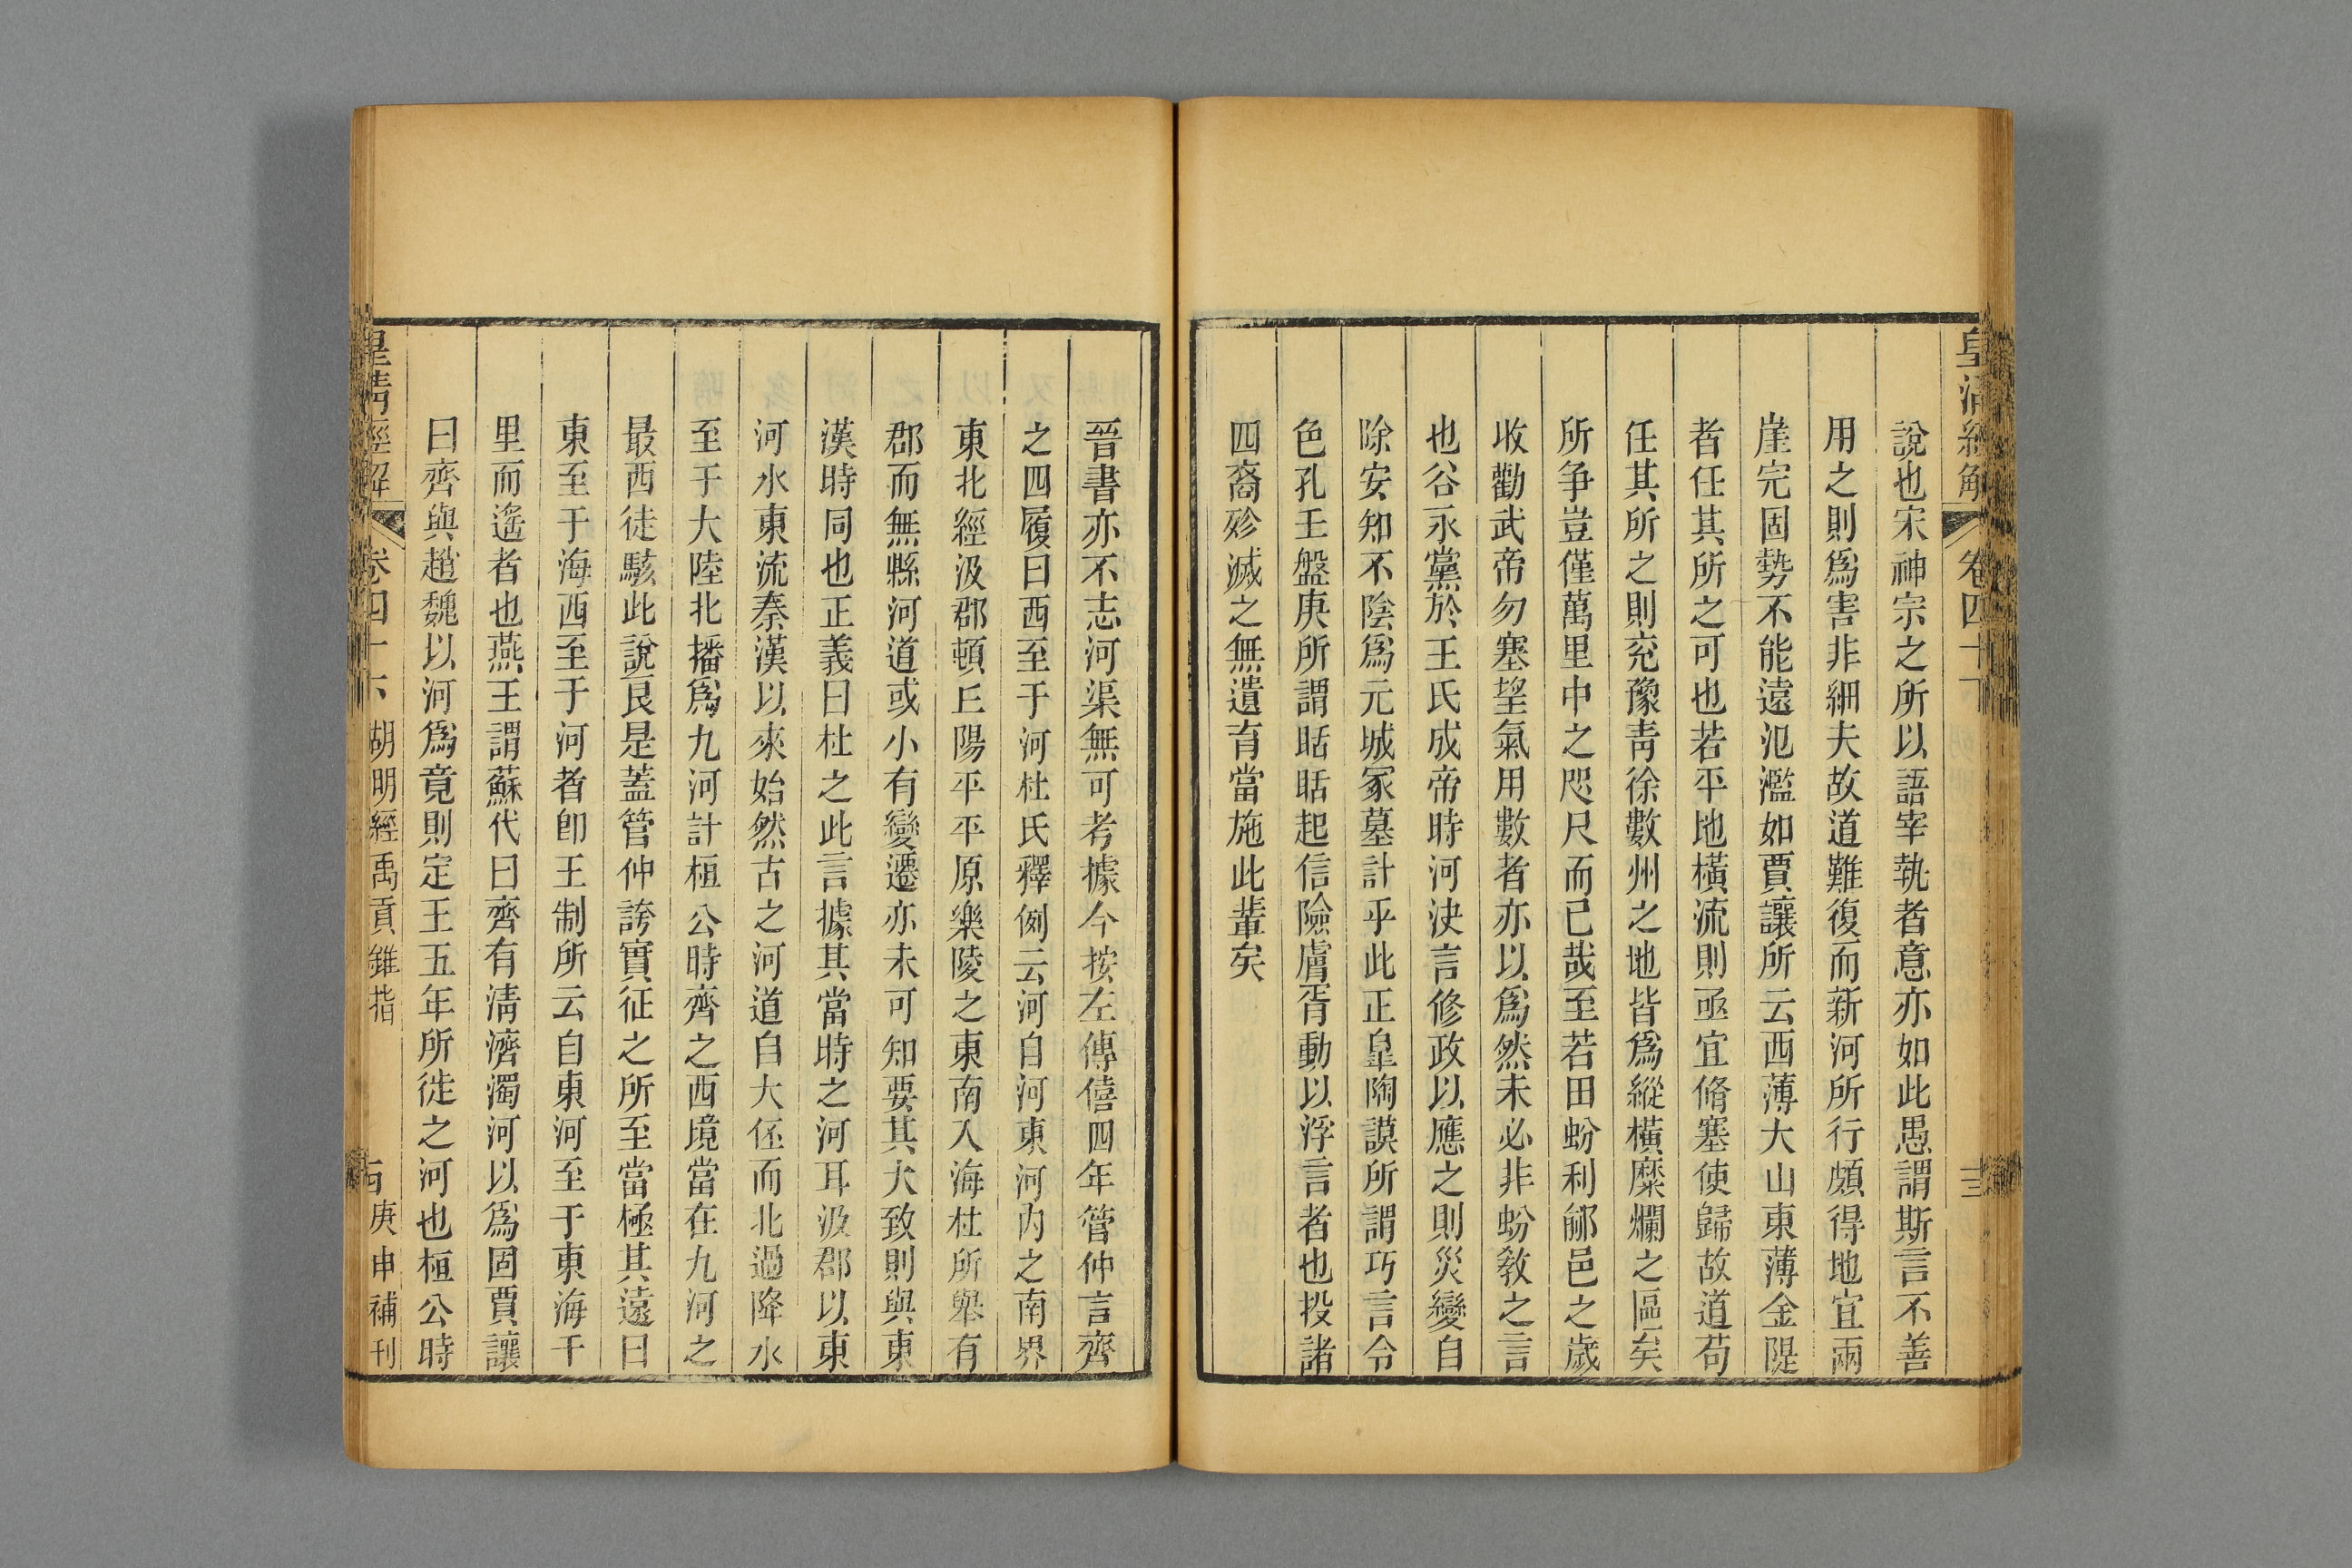 皇清經解 卷四十 三
說也宋神宗之所以語宰執者意亦如此愚謂斯言不善
用之則爲害非細夫故道難復而新河所行頗得地宜兩
崖完固勢不能遠氾濫如賈讓所云西薄大山東薄金隄
者任其所之可也若平地橫流則亟宜脩塞使歸故道苟
任其所之則兖豫靑徐數州之地皆爲縱橫糜爛之區矣
所爭豈僅萬里中之咫尺而已哉至若田蚡利鄃邑之歲
收勸武帝勿塞望氣用數者亦以爲然未必非蚡敎之言
也谷永黨於王氏成帝時河決言修政以應之則災變自
除安知不陰爲元城冢墓計乎此正皐陶謨所謂巧言令
色孔壬盤庚所謂聒聒起信險膚胥動以浮言者也投諸
四裔殄滅之無遺育當施此輩矣
晉書亦不志河渠無可考據今按左傳僖四年管仲言齊
之四履曰西至于河杜氏釋例云河自河東河內之南界
東北經汲郡頓丘陽平平原樂陵之東南入海杜所舉有
郡而無縣河道或小有變遷亦未可知要其大致則與東
漢時同也正義曰杜之此言據其當時之河耳汲郡以東
河水東流秦漢以來始然古之河道自大伾而北過降水
至于大陸北播爲九河計桓公時齊之西境當在九河之
最西徒駭此說良是蓋管仲誇實征之所至當極其遠曰
東至于海西至于河者卽王制所云自東河至于東海千
里而遙者也燕王謂蘇代曰齊有淸濟濁河以爲固賈讓
曰齊與趙魏以河爲竟則定王五年所徙之河也桓公時
皇清經解 卷四十六 胡明經禹貢錐指 庚申補刊